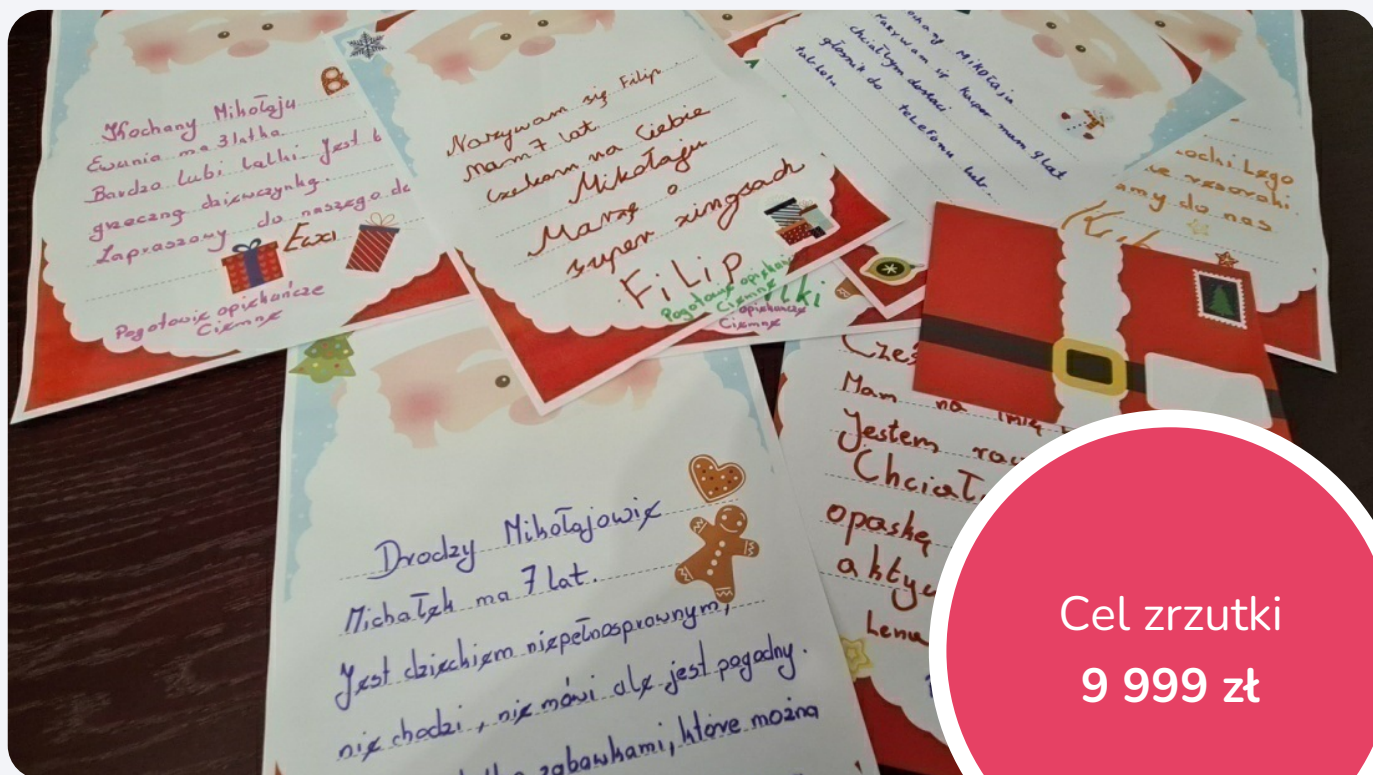 Kochany Mikołaju
Ewunia ma 3 latka
Bardzo lubi lalki Jest b
grzeczną dziewczynką.
Zapraszamy do naszego do
Ewa
Pogotowie opiekuńcze
Ciemne
Nazywam się Filip
mam 7 lat.
Czekam na Ciebie
Mikołaju
Marzę o
super xingsach
FiLip
Pogotowie opiekuń
Ciemne
opiekuńcze
Ciemne
ochany Mikołaju
Nazywam się Kacper mam 9 lat
chciałbym dostać
głośnik do telefonu lub
tabletu
ocki Lego
resoraki.
amy do nas
Drodzy Mikołajowie
Michałek ma 7 lat.
Jest dzieckiem niepełnosprawnym,
nie chodzi, nie mówi ale jest pogodny.
zabawkami, które można
Cześ
Mam na imię
Jestem
Chciał
opaskę
aktyw
Lena
Cel zrzutki
9 999 zł